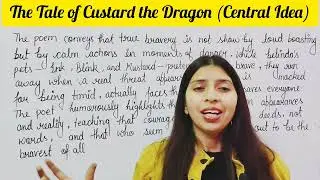 The Tale of Custard the Dragon (Central Idea)
The poem conveys that true bravery is not shown by loud boasting
but by calm actions in moments of danger. While belinda's
pets - Ink, Blink, and Mustard - brave, they run
away when a real threat appears is mocked
for being timid, actually faces saves everyone
The poet humorously highlights appearances
and reality, teaching that courage deeds, not
words, and that who seem out to be the
bravest of all